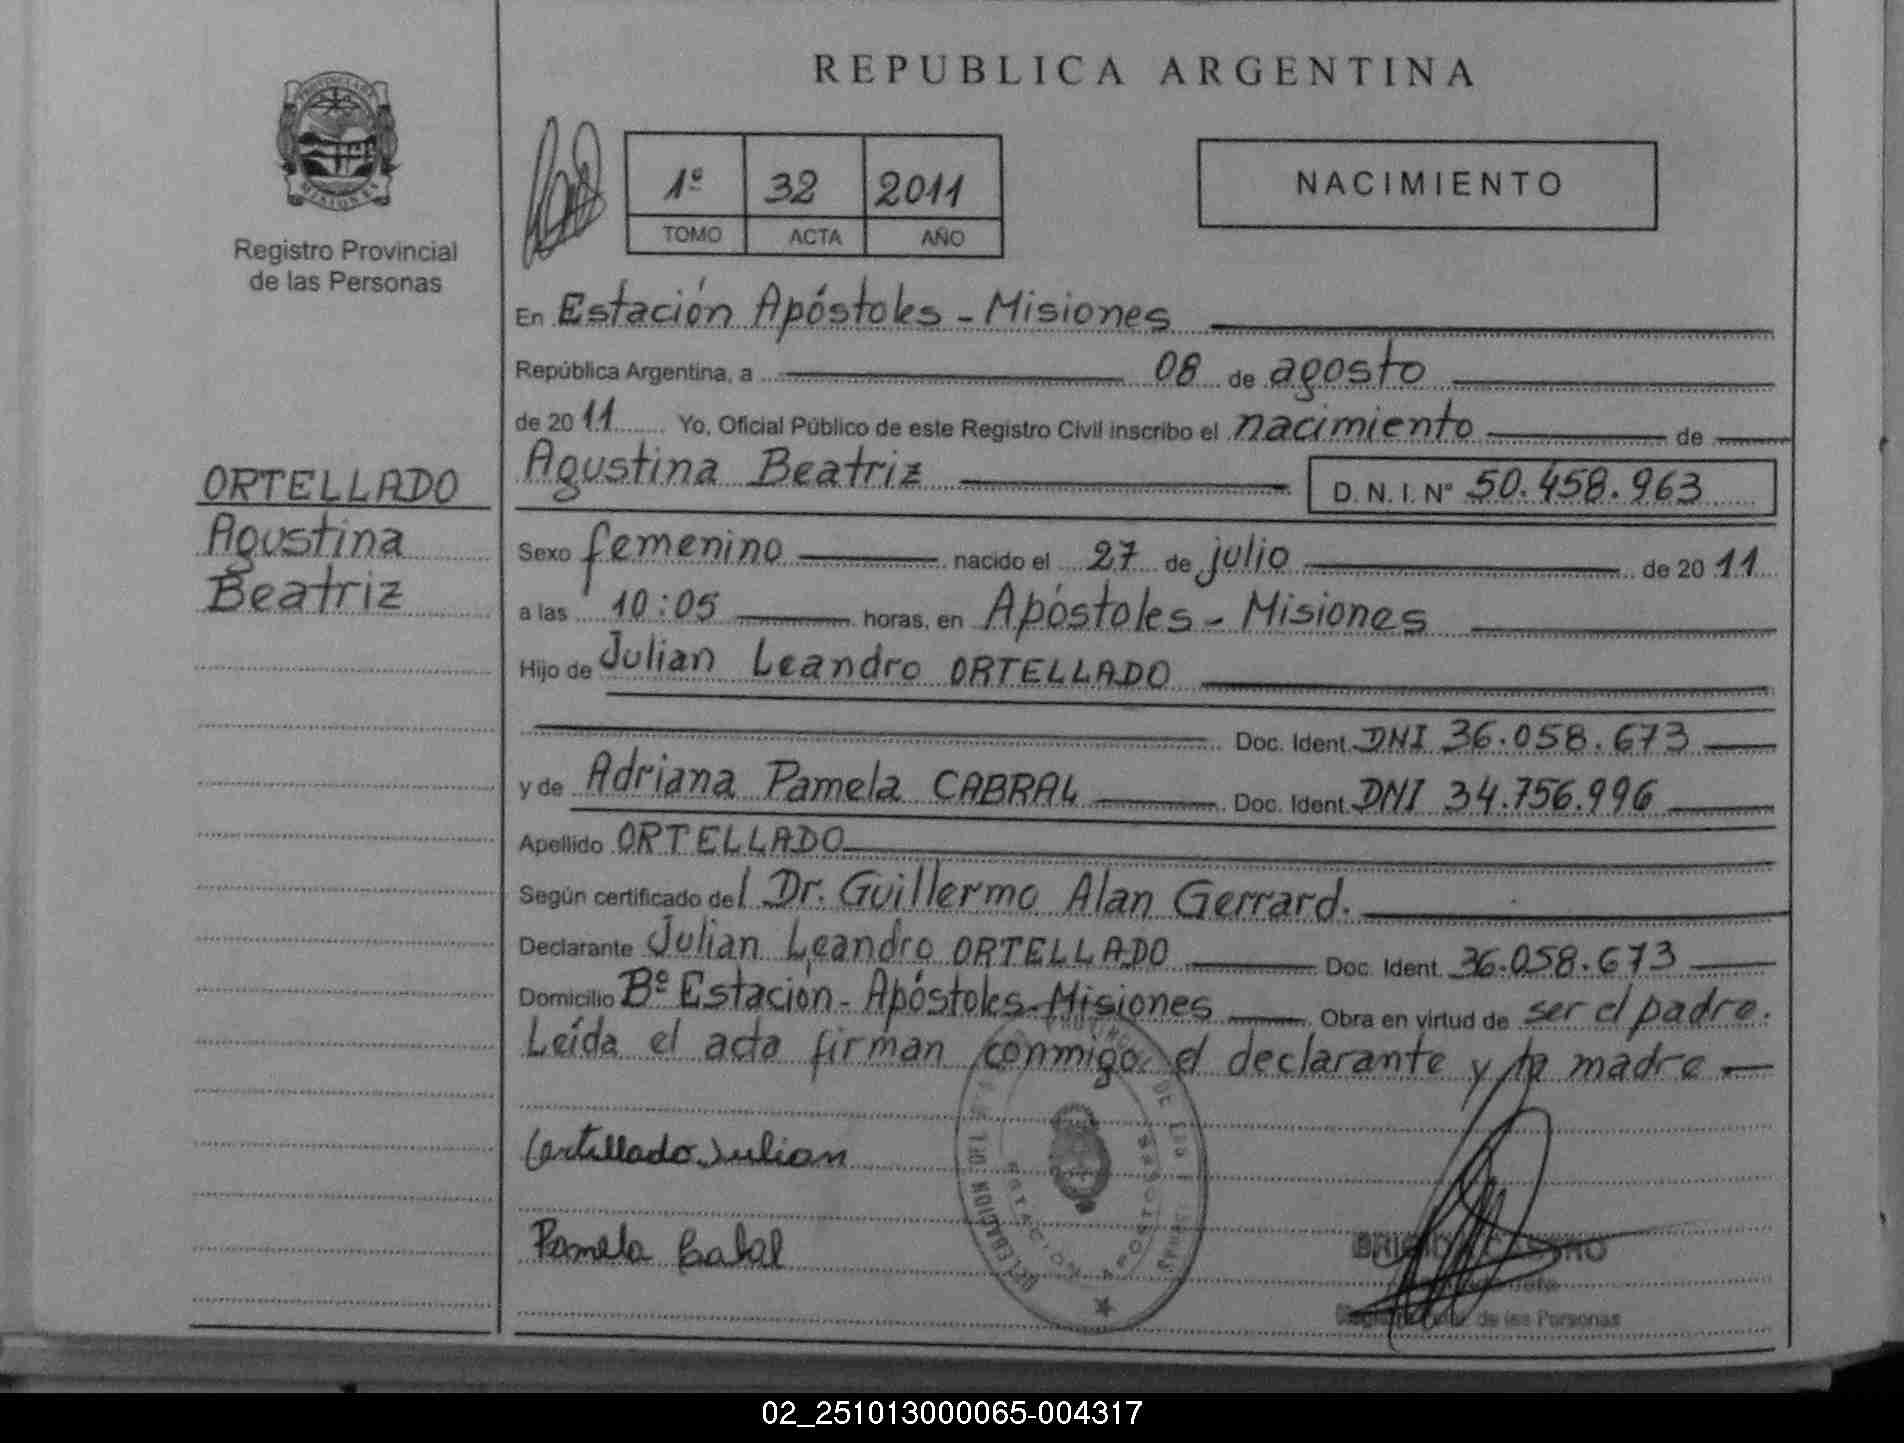 REPUBLICA ARGENTINA
PROVINCIA DE
MISIONES
Registro Provincial
de las Personas
1º 32 2011
TOMO ACTA AÑO
NACIMIENTO
En Estación Apóstoles - Misiones
República Argentina, a 08 de agosto
de 2011 Yo, Oficial Público de este Registro Civil inscribo el nacimiento de
Agustina Beatriz D. N. I. Nº 50.458.963
ORTELLADO
Agustina
Beatriz
Sexo femenino nacido el 27 de julio de 2011
a las 10:05 horas, en Apóstoles - Misiones
Hijo de Julian Leandro ORTELLADO
Doc. Ident. DNI 36.058.673
y de Adriana Pamela CABRAL Doc. Ident. DNI 34.756.996
Apellido ORTELLADO
Según certificado del Dr. Guillermo Alan Gerrard.
Declarante Julian Leandro ORTELLADO Doc. Ident. 36.058.673
Domicilio Bº Estación - Apóstoles - Misiones Obra en virtud de ser el padre.
Leída el acta firman conmigo el declarante y la madre
Ortellado Julian
Pamela Cabal
DELEGACION DEL
ESTACION APOSTOLES
BRIGIDA CASTRO
de las Personas
02_251013000065-004317